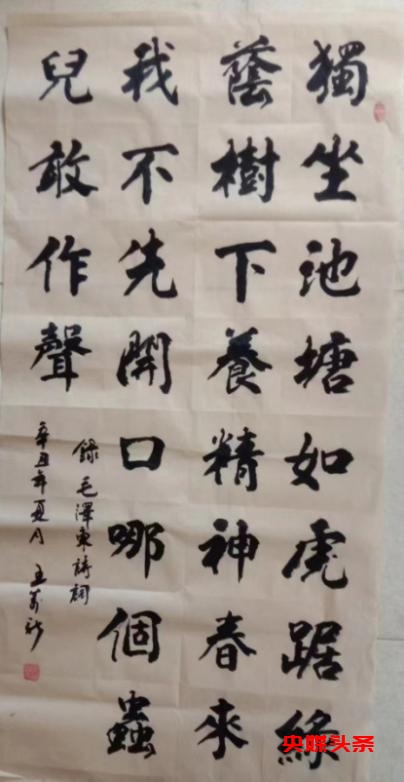 獨坐池塘如虎踞綠
蔭樹下養精神春來
我不先開口哪個蟲
兒敢作聲
錄毛澤東詩詞
辛丑年夏月 王
央媒头条